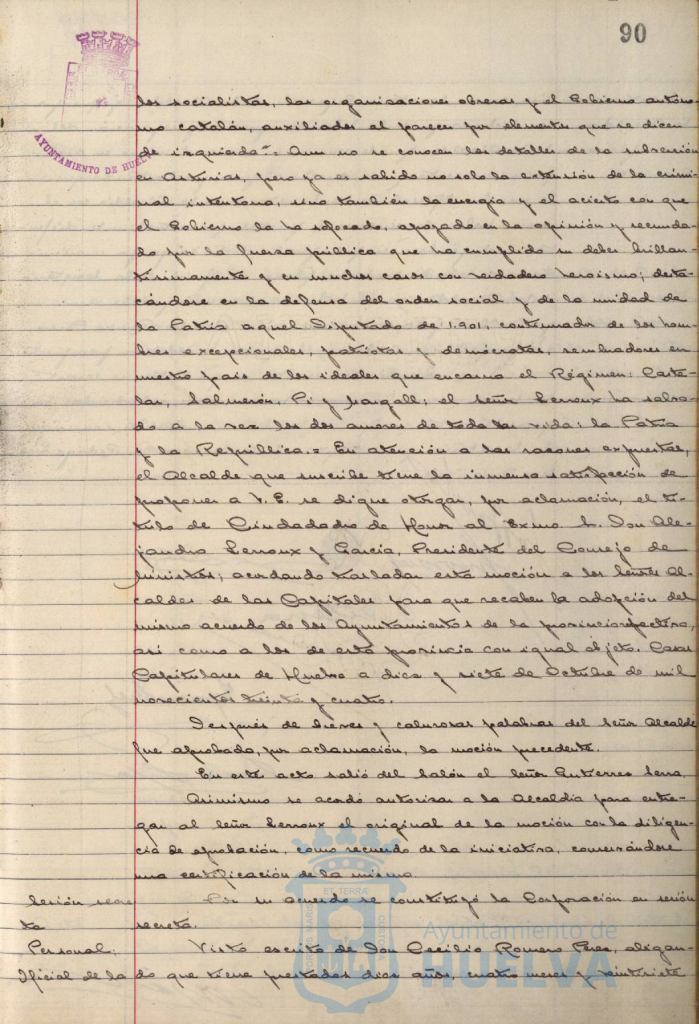 90
AYUNTAMIENTO DE HUELVA
los socialistas, las organizaciones obreras y el Gobierno autóno-
mo catalán, auxiliados al parecer por elementos que se dicen
de izquierda".= Aun no se conocen los detalles de la subversión
en Asturias, pero ya es sabido no solo la extensión de la crimi-
nal intentona, sino también la energía y el acierto con que
el Gobierno la ha sofocado, apoyado en la opinión y secunda-
do por la fuerza pública que ha cumplido su deber brillan-
tísimamente y en muchos casos con verdadero heroísmo; desta-
cándose en la defensa del orden social y de la unidad de
la Patria aquel Diputado de 1.901, continuador de los hom-
bres excepcionales, patriotas y demócratas, sembradores en
nuestro país de los ideales que encarna el Régimen: Caste-
lar, Salmerón, Pi y Margall; el Señor Lerroux ha salva-
do a la vez los dos amores de toda su vida: la Patria
y la República.= En atención a las razones expuestas,
el Alcalde que suscribe tiene la inmensa satisfacción de
proponer a V. E. se digne otorgar, por aclamación, el tí-
tulo de Ciudadano de Honor al Exmo Sr. Don Ale-
jandro Lerroux y García, Presidente del Consejo de
Ministros; acordando trasladar esta moción a los Señores Al-
caldes de las Capitales para que recaben la adopción del
mismo acuerdo de los Ayuntamientos de la provincia respectiva,
así como a los de esta provincia con igual objeto. Casas
Capitulares de Huelva a diez y siete de Octubre de mil
novecientos treinta y cuatro.
Después de breves y calurosas palabras del Señor Alcalde
fue aprobada, por aclamación, la moción precedente.
En este acto salió del Salón el Señor Gutierrez Serra.
Asimismo se acordó autorizar a la Alcaldía para entre-
gar al Señor Lerroux el original de la moción con la diligen-
cia de aprobación, como recuerdo de la iniciativa, conservándose
una certificación de la misma.
Sesión secre-
ta
Por su acuerdo se constituyó la Corporación en sesión
secreta.
Personal:
Oficial de la
Visto escrito de Don Cecilio Romero Perez, alegan-
do que tiene prestados diez años, cuatro meses y veintisiete
Ayuntamiento de
HUELVA